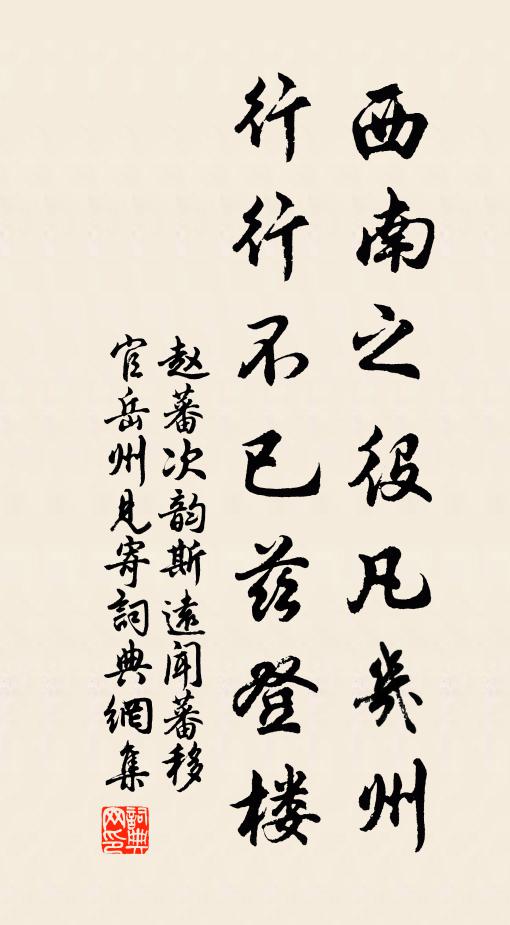 西南之役凡幾州
行行不已兹登楼
赵蕃次韵斯遠闻蕃移
官岳州見寄詞典網集
詞典网印